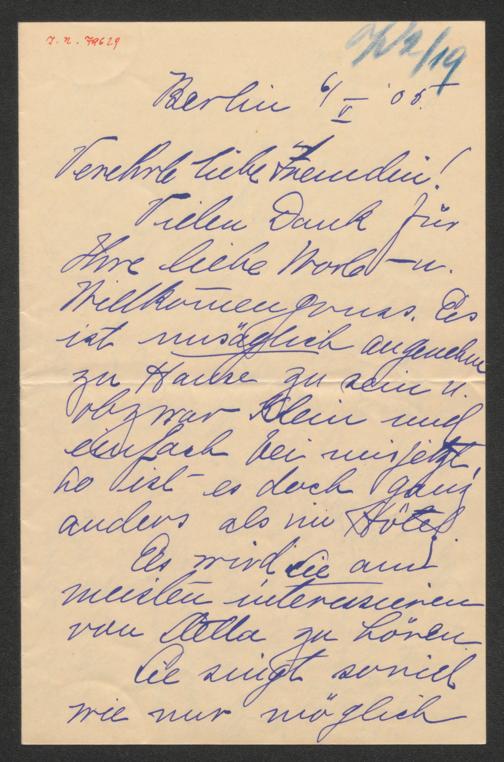 J. N. 79629
Berlin 6/V 05.
Verehrte liebe Freundin!
Vielen Dank für
Ihre liebe Worte u.
Willkom̄engruss. Es
ist unsäglich angenehm
zu Hause zu sein u.
obzwar klein und
einfach bei uns jetzt,
so ist es doch ganz
anders als im Hôtel.
Es wird Sie am
meisten interessieren
von Stella zu hören
Sie singt soviel
wie nur möglich